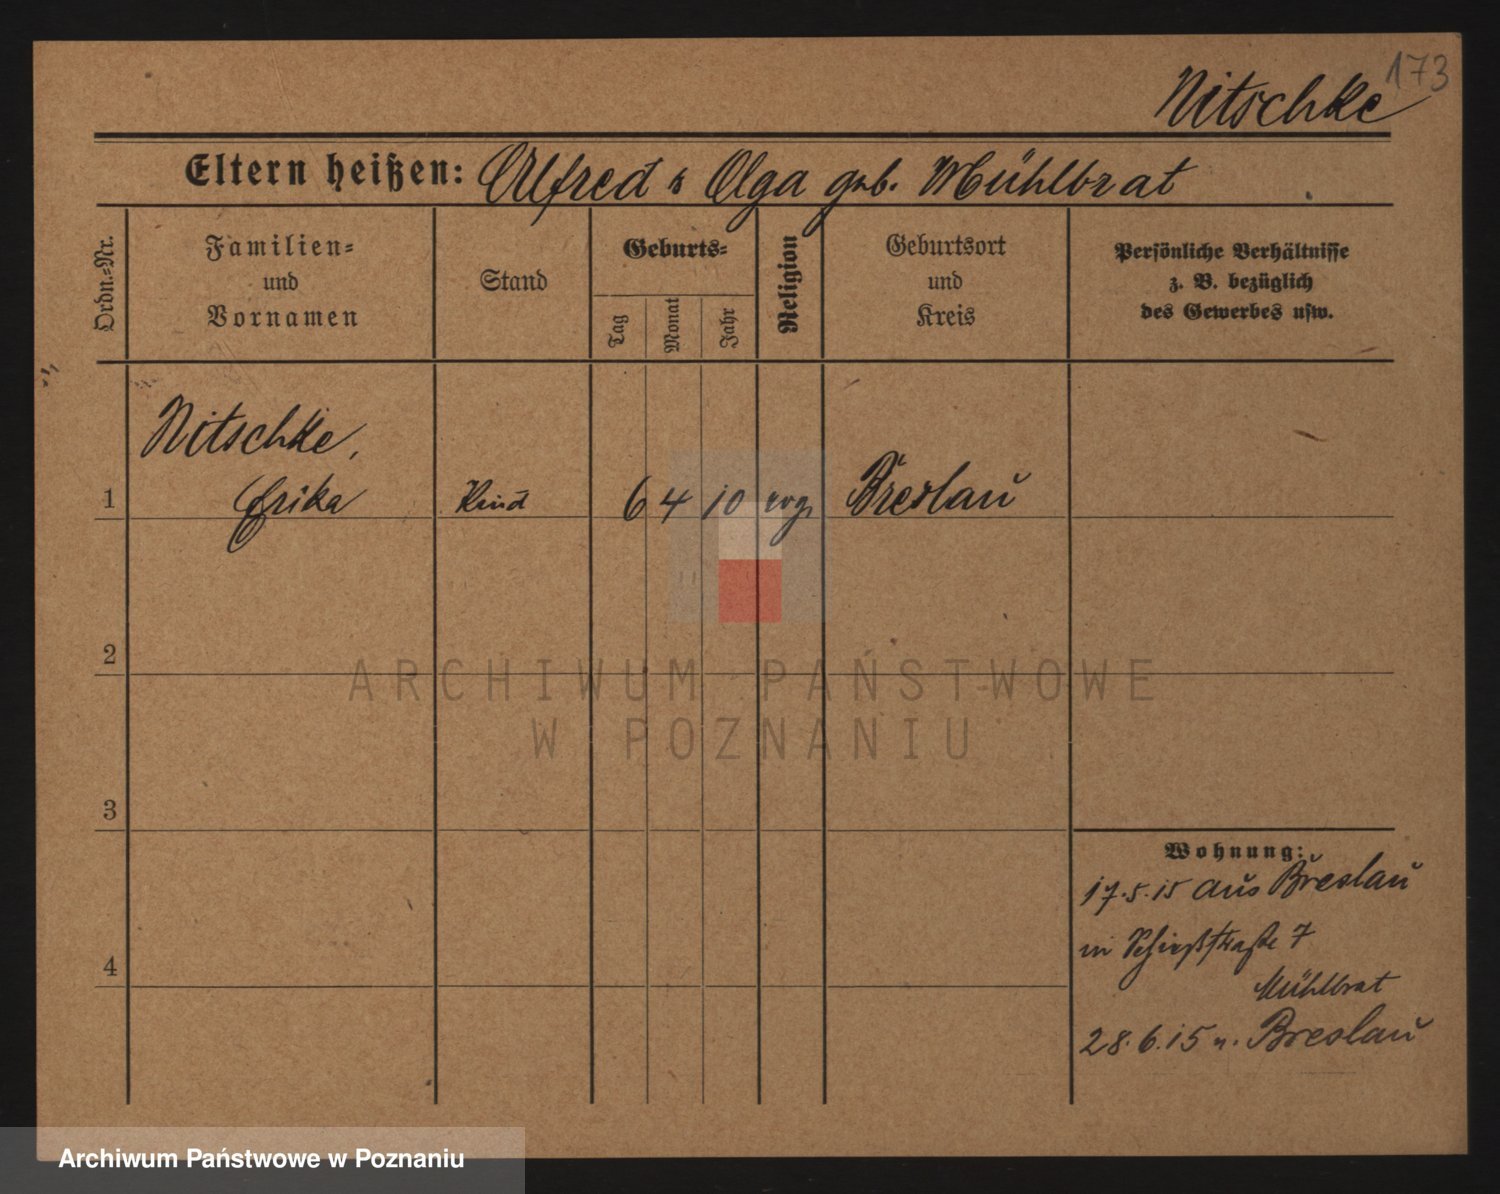 173
Nitschke
Eltern heißen: Alfred & Olga geb. Mühlbrat
Ordn.=Nr.
Familien=
und
Vornamen
Stand
Geburts=
Tag
Monat
Jahr
Religion
Geburtsort
und
Kreis
Persönliche Verhältnisse
z. B. bezüglich
des Gewerbes usw.
Nitschke,
1 Erika Kind 6 4 10 evg. Breslau
2
3
4
Wohnung:
17.5.15 aus Breslau
in Schießstraße 7
Mühlbrat
28.6.15 n. Breslau
ARCHIWUM PAŃSTWOWE
W POZNANIU
Archiwum Państwowe w Poznaniu